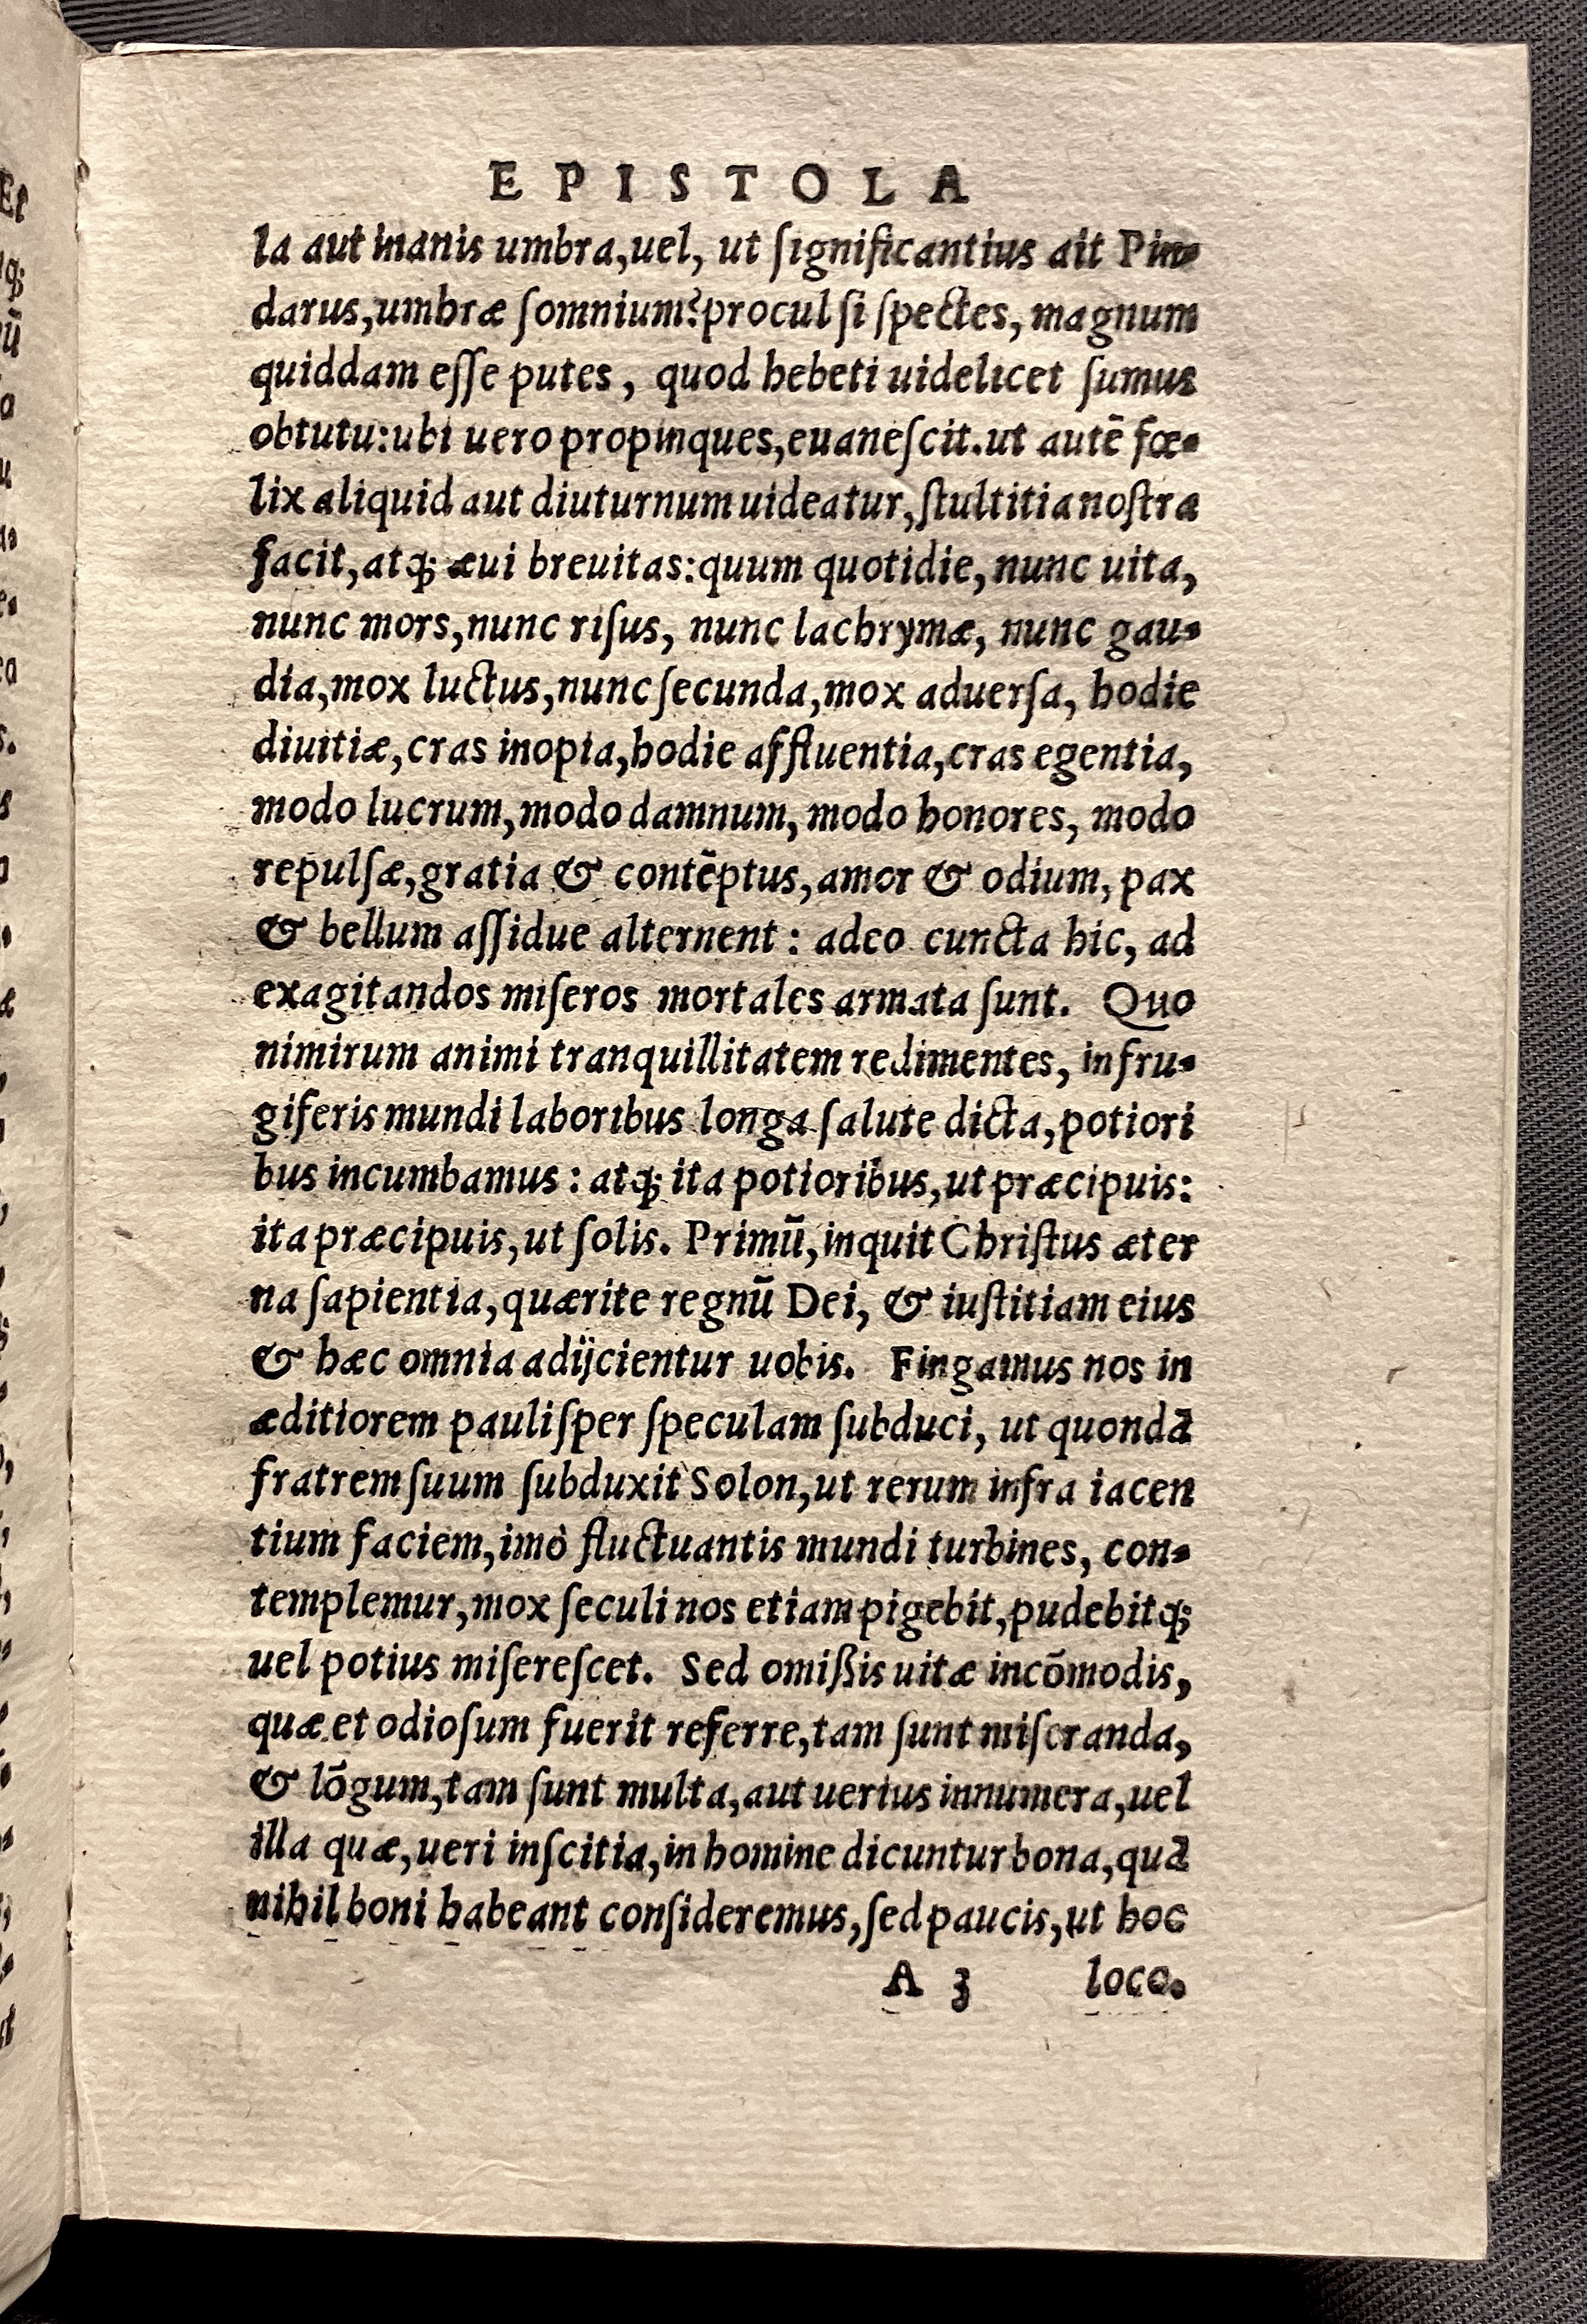 EPISTOLA
la aut inanis umbra,uel, ut ſignificantius ait Pin-
darus,umbræ ſomnium?procul ſi ſpectes, magnum
quiddam eſſe putes, quod hebeti uidelicet ſumus
obtutu:ubi uero propinques,euaneſcit.ut autē fœ-
lix aliquid aut diuturnum uideatur,ſtultitia noſtra
facit,atq; æui breuitas:quum quotidie,nunc uita,
nunc mors,nunc riſus, nunc lachrymæ, nunc gau-
dia,mox luctus,nunc ſecunda,mox aduerſa, hodie
diuitiæ,cras inopia,hodie affluentia,cras egentia,
modo lucrum,modo damnum,modo honores, modo
repulſæ,gratia & contēptus,amor & odium, pax
& bellum aſſidue alternent: adeo cuncta hic, ad
exagitandos miſeros mortales armata ſunt. Quo
nimirum animi tranquillitatem redimentes, infru-
giferis mundi laboribus longa ſalute dicta,potiori
bus incumbamus: atq; ita potioribus,ut præcipuis:
ita præcipuis,ut ſolis. Primū,inquit Chriſtus æter
na ſapientia,quærite regnū Dei, & iuſtitiam eius
& hæc omnia adijcientur uobis. Fingamus nos in
æditiorem pauliſper ſpeculam ſubduci, ut quondā
fratrem ſuum ſubduxit Solon,ut rerum infra iacen
tium faciem,imò fluctuantis mundi turbines, con-
templemur,mox ſeculi nos etiam pigebit,pudebitq;
uel potius miſereſcet. Sed omißis uitæ incōmodis,
quæ et odioſum fuerit referre,tam ſunt miſeranda,
& lōgum,tam ſunt multa,aut uerius innumera,uel
illa quæ,ueri inſcitia,in homine dicuntur bona,quā
nihil boni habeant conſideremus,ſed paucis,ut hoc
A 3 loco.